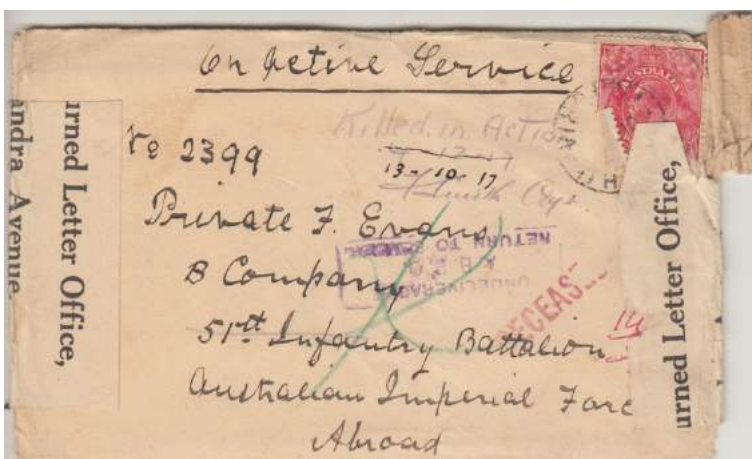 On Active Service
AUSTRALIA
Killed in Action
13-10-17
No 2399
Private F. Evans
B Company
51st Infantry Battalion
Australian Imperial Forc
Abroad
UNDELIVERA
RETURN TO
DECEASE
14
urned Letter Office,
andra Avenue
urned Letter Office,